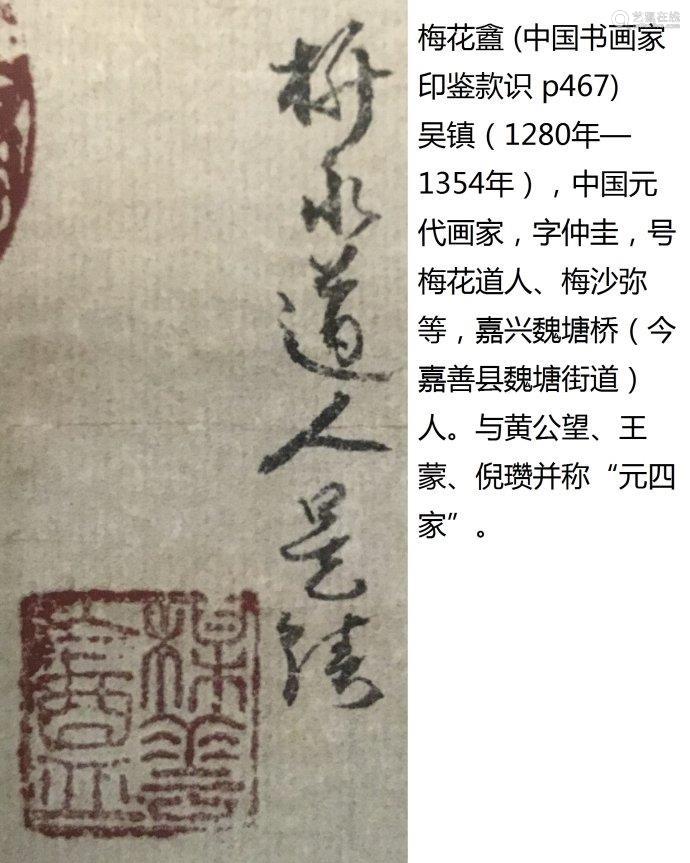 梅花盦 (中国书画家
印鉴款识 p467)
吴镇（1280年—
1354年），中国元
代画家，字仲圭，号
梅花道人、梅沙弥
等，嘉兴魏塘桥（今
嘉善县魏塘街道）
人。与黄公望、王
蒙、倪瓒并称“元四
家”。
水道人是